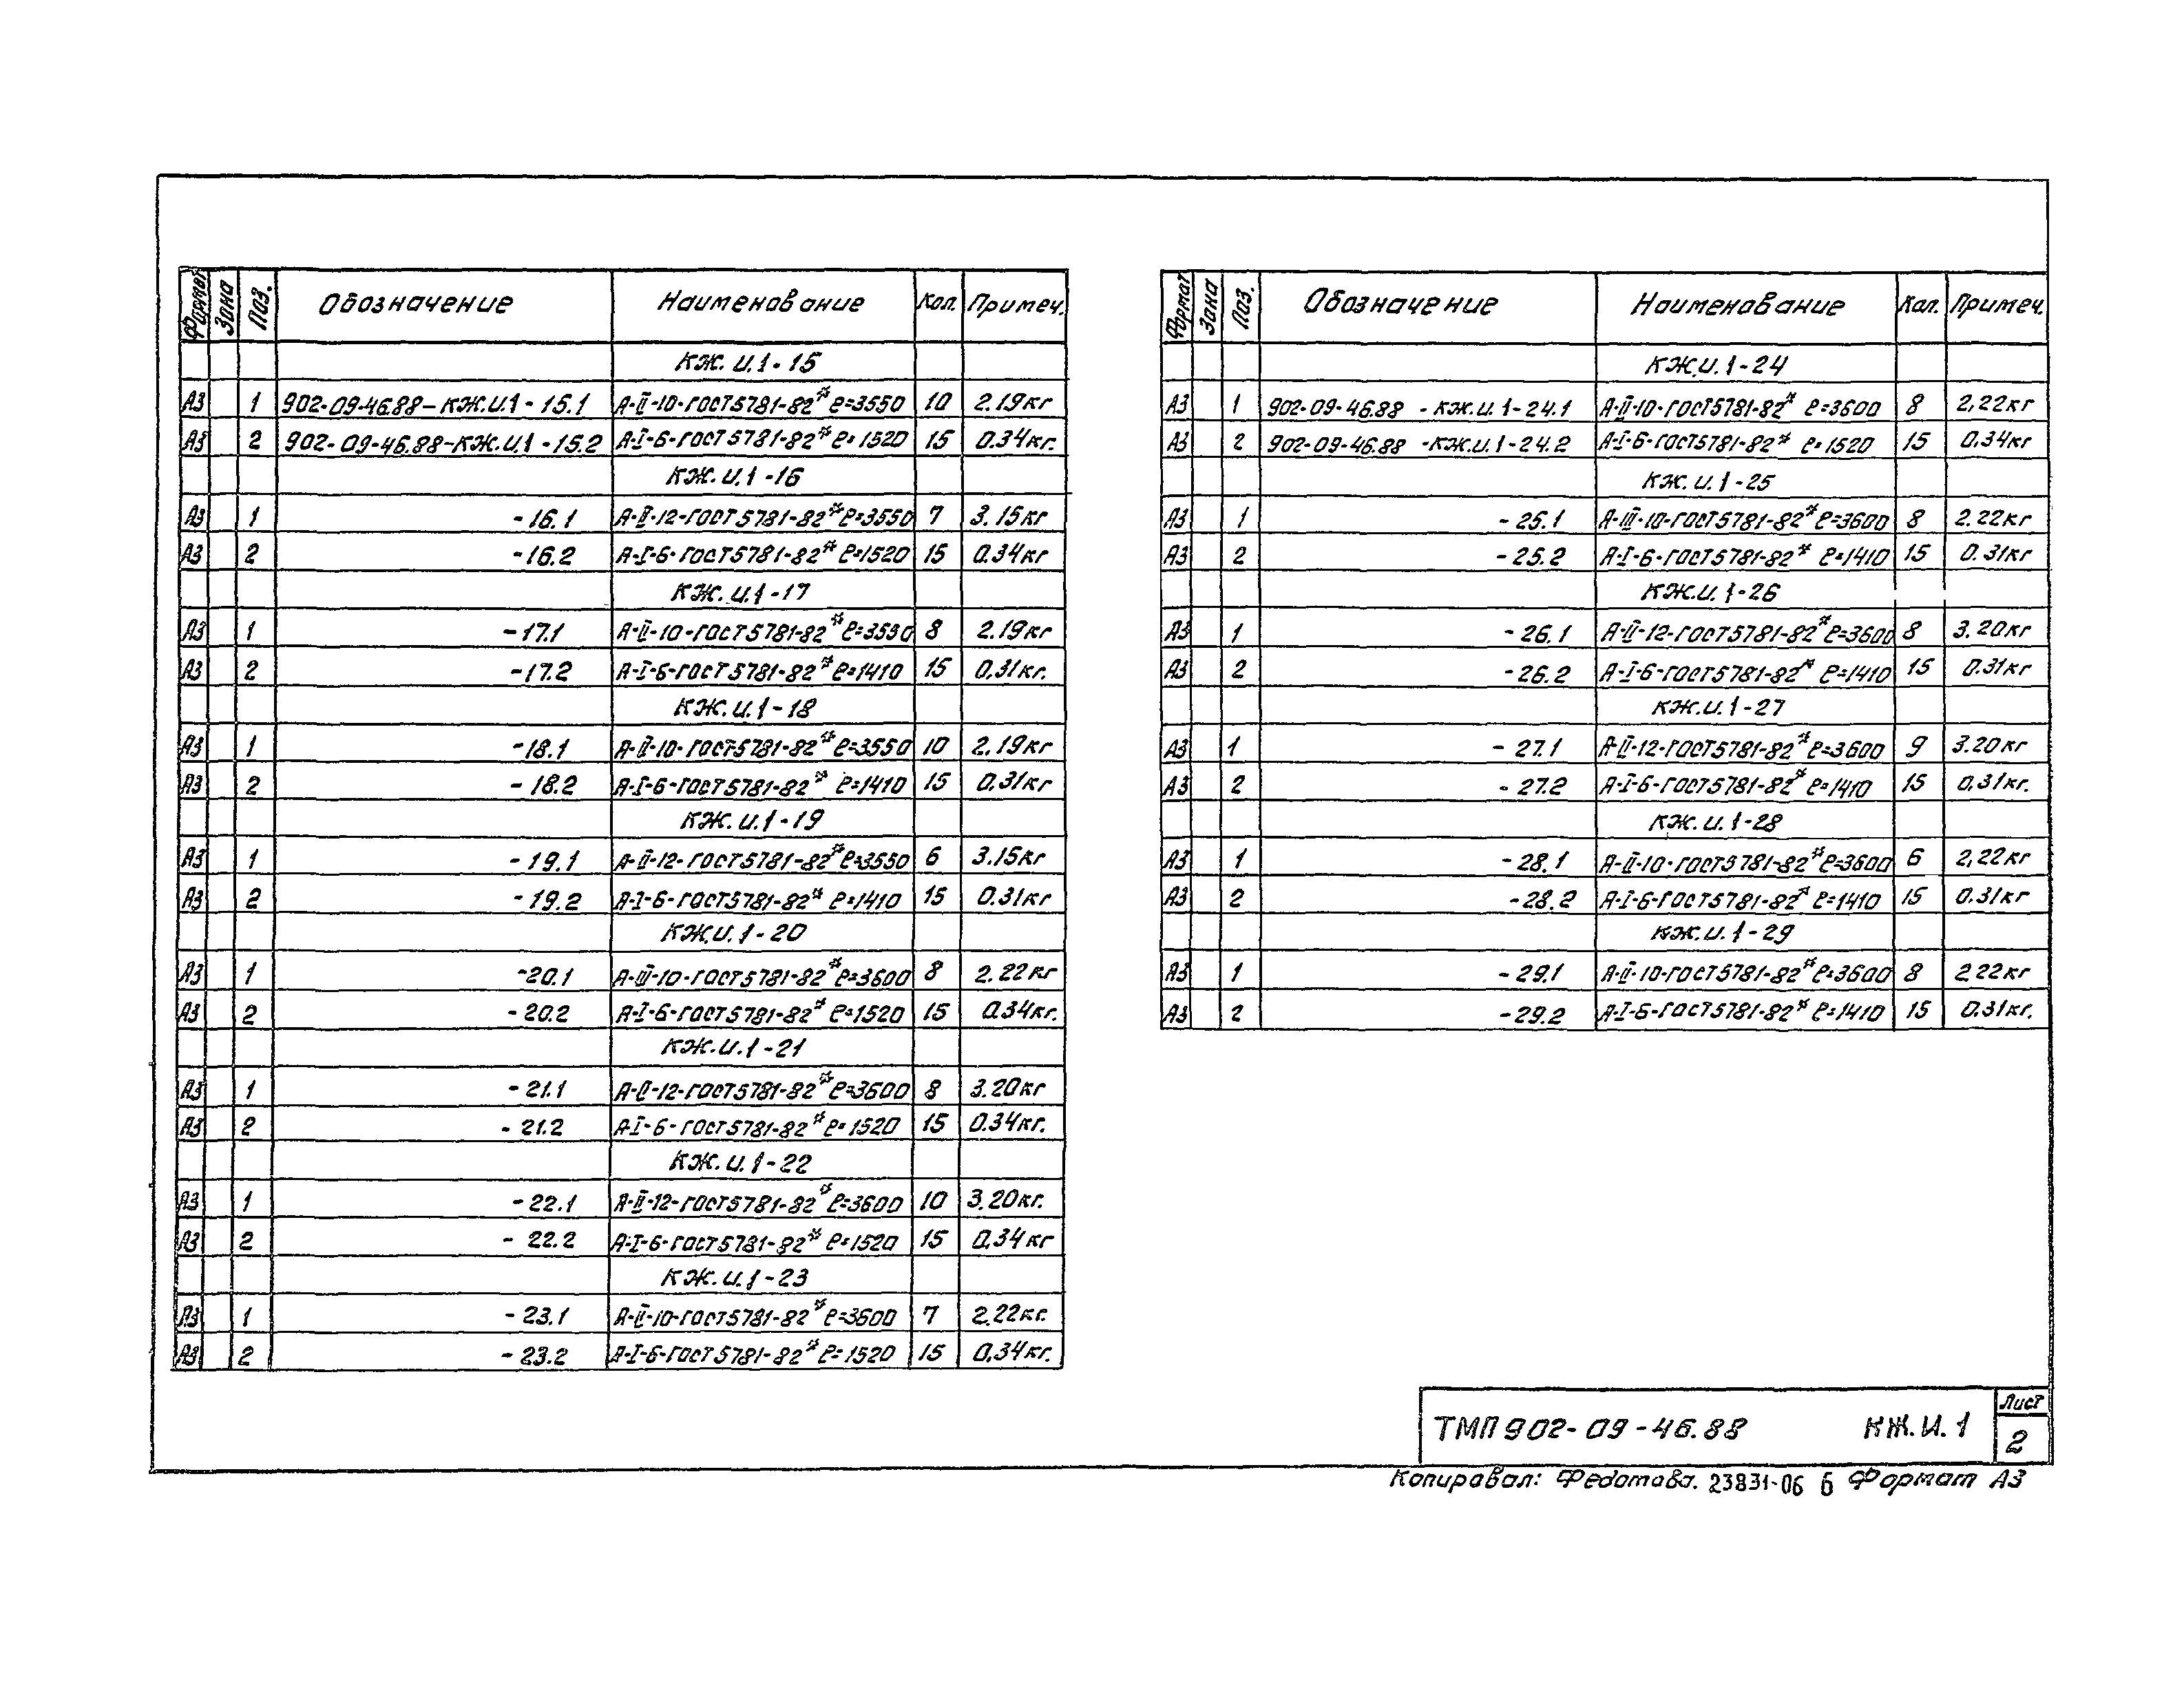 Формат Зона Поз. Обозначение Наименование Кол. Примеч.
КЖ.И.1-15
А3 1 902-09-46.88-КЖ.И.1-15.1 А-II-10-ГОСТ5781-82* ℓ=3550 10 2.19кг
А3 2 902-09-46.88-КЖ.И.1-15.2 А-I-6-ГОСТ5781-82* ℓ=1520 15 0.34кг.
КЖ.И.1-16
А3 1 -16.1 А-II-12-ГОСТ5781-82* ℓ=3550 7 3.15кг
А3 2 -16.2 А-I-6-ГОСТ5781-82* ℓ=1520 15 0.34кг
КЖ.И.1-17
А3 1 -17.1 А-II-10-ГОСТ5781-82* ℓ=3550 8 2.19кг
А3 2 -17.2 А-I-6-ГОСТ5781-82* ℓ=1410 15 0,31кг.
КЖ.И.1-18
А3 1 -18.1 А-II-10-ГОСТ5781-82* ℓ=3550 10 2,19кг
А3 2 -18.2 А-I-6-ГОСТ5781-82* ℓ=1410 15 0,31кг
КЖ.И.1-19
А3 1 -19.1 А-II-12-ГОСТ5781-82* ℓ=3550 6 3.15кг
А3 2 -19.2 А-I-6-ГОСТ5781-82* ℓ=1410 15 0.31кг
КЖ.И.1-20
А3 1 -20.1 А-III-10-ГОСТ5781-82* ℓ=3600 8 2.22кг
А3 2 -20.2 А-I-6-ГОСТ5781-82* ℓ=1520 15 0.34кг.
КЖ.И.1-21
А3 1 -21.1 А-II-12-ГОСТ5781-82* ℓ=3600 8 3.20кг
А3 2 -21.2 А-I-6-ГОСТ5781-82* ℓ=1520 15 0.34кг.
КЖ.И.1-22
А3 1 -22.1 А-II-12-ГОСТ5781-82* ℓ=3600 10 3.20кг.
А3 2 -22.2 А-I-6-ГОСТ5781-82* ℓ=1520 15 0,34кг
КЖ.И.1-23
А3 1 -23.1 А-II-10-ГОСТ5781-82* ℓ=3600 7 2.22кг.
А3 2 -23.2 А-I-6-ГОСТ5781-82* ℓ=1520 15 0,34кг.
Формат Зона Поз. Обозначение Наименование Кол. Примеч.
КЖ.И.1-24
А3 1 902-09-46.88 -КЖ.И.1-24.1 А-II-10-ГОСТ5781-82* ℓ=3600 8 2,22кг
А3 2 902-09-46.88 -КЖ.И.1-24.2 А-I-6-ГОСТ5781-82* ℓ=1520 15 0,34кг
КЖ.И.1-25
А3 1 -25.1 А-III-10-ГОСТ5781-82* ℓ=3600 8 2.22кг
А3 2 -25.2 А-I-6-ГОСТ5781-82* ℓ=1410 15 0.31кг
КЖ.И.1-26
А3 1 -26.1 А-II-12-ГОСТ5781-82* ℓ=3600 8 3.20кг
А3 2 -26.2 А-I-6-ГОСТ5781-82* ℓ=1410 15 0.31кг
КЖ.И.1-27
А3 1 -27.1 А-II-12-ГОСТ5781-82* ℓ=3600 9 3.20кг
А3 2 -27.2 А-I-6-ГОСТ5781-82* ℓ=1410 15 0,31кг.
КЖ.И.1-28
А3 1 -28.1 А-II-10-ГОСТ5781-82* ℓ=3600 6 2,22кг
А3 2 -28.2 А-I-6-ГОСТ5781-82* ℓ=1410 15 0.31кг
КЖ.И.1-29
А3 1 -29.1 А-II-10-ГОСТ5781-82* ℓ=3600 8 2.22кг
А3 2 -29.2 А-I-6-ГОСТ5781-82* ℓ=1410 15 0.31кг.
ТМП 902-09-46.88 КЖ.И.1
Лист
2
Копировал: Федотова. 23831-06 6 Формат А3